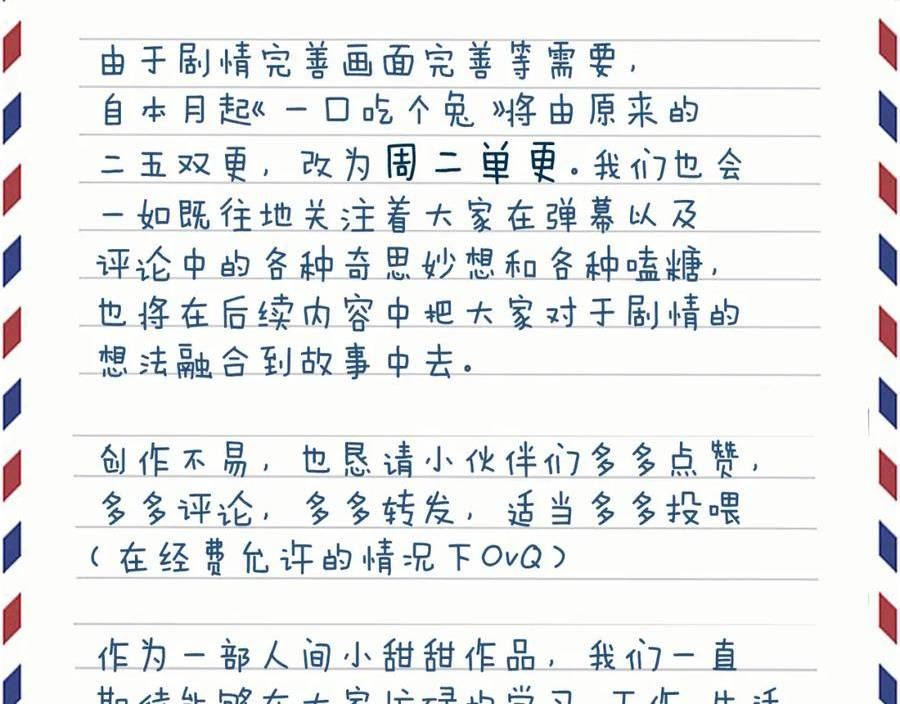 由于剧情完善画面完善等需要，
自本月起《一口吃个兔》将由原来的
二五双更，改为周二单更。我们也会
一如既往地关注着大家在弹幕以及
评论中的各种奇思妙想和各种嗑糖，
也将在后续内容中把大家对于剧情的
想法融合到故事中去。
创作不易，也恳请小伙伴们多多点赞，
多多评论，多多转发，适当多多投喂
（在经费允许的情况下OvQ）
作为一部人间小甜甜作品，我们一直
期待能够在大家忙碌的学习、工作、生活